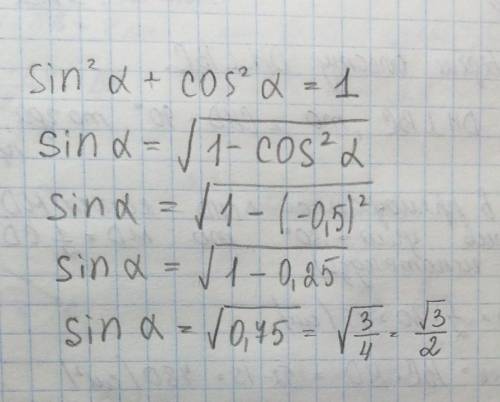 sin² α + cos² α = 1
sin α = √(1 - cos² α)
sin α = √(1 - (-0,5)²)
sin α = √(1 - 0,25)
sin α = √0,75 = √(3/4) = √3/2